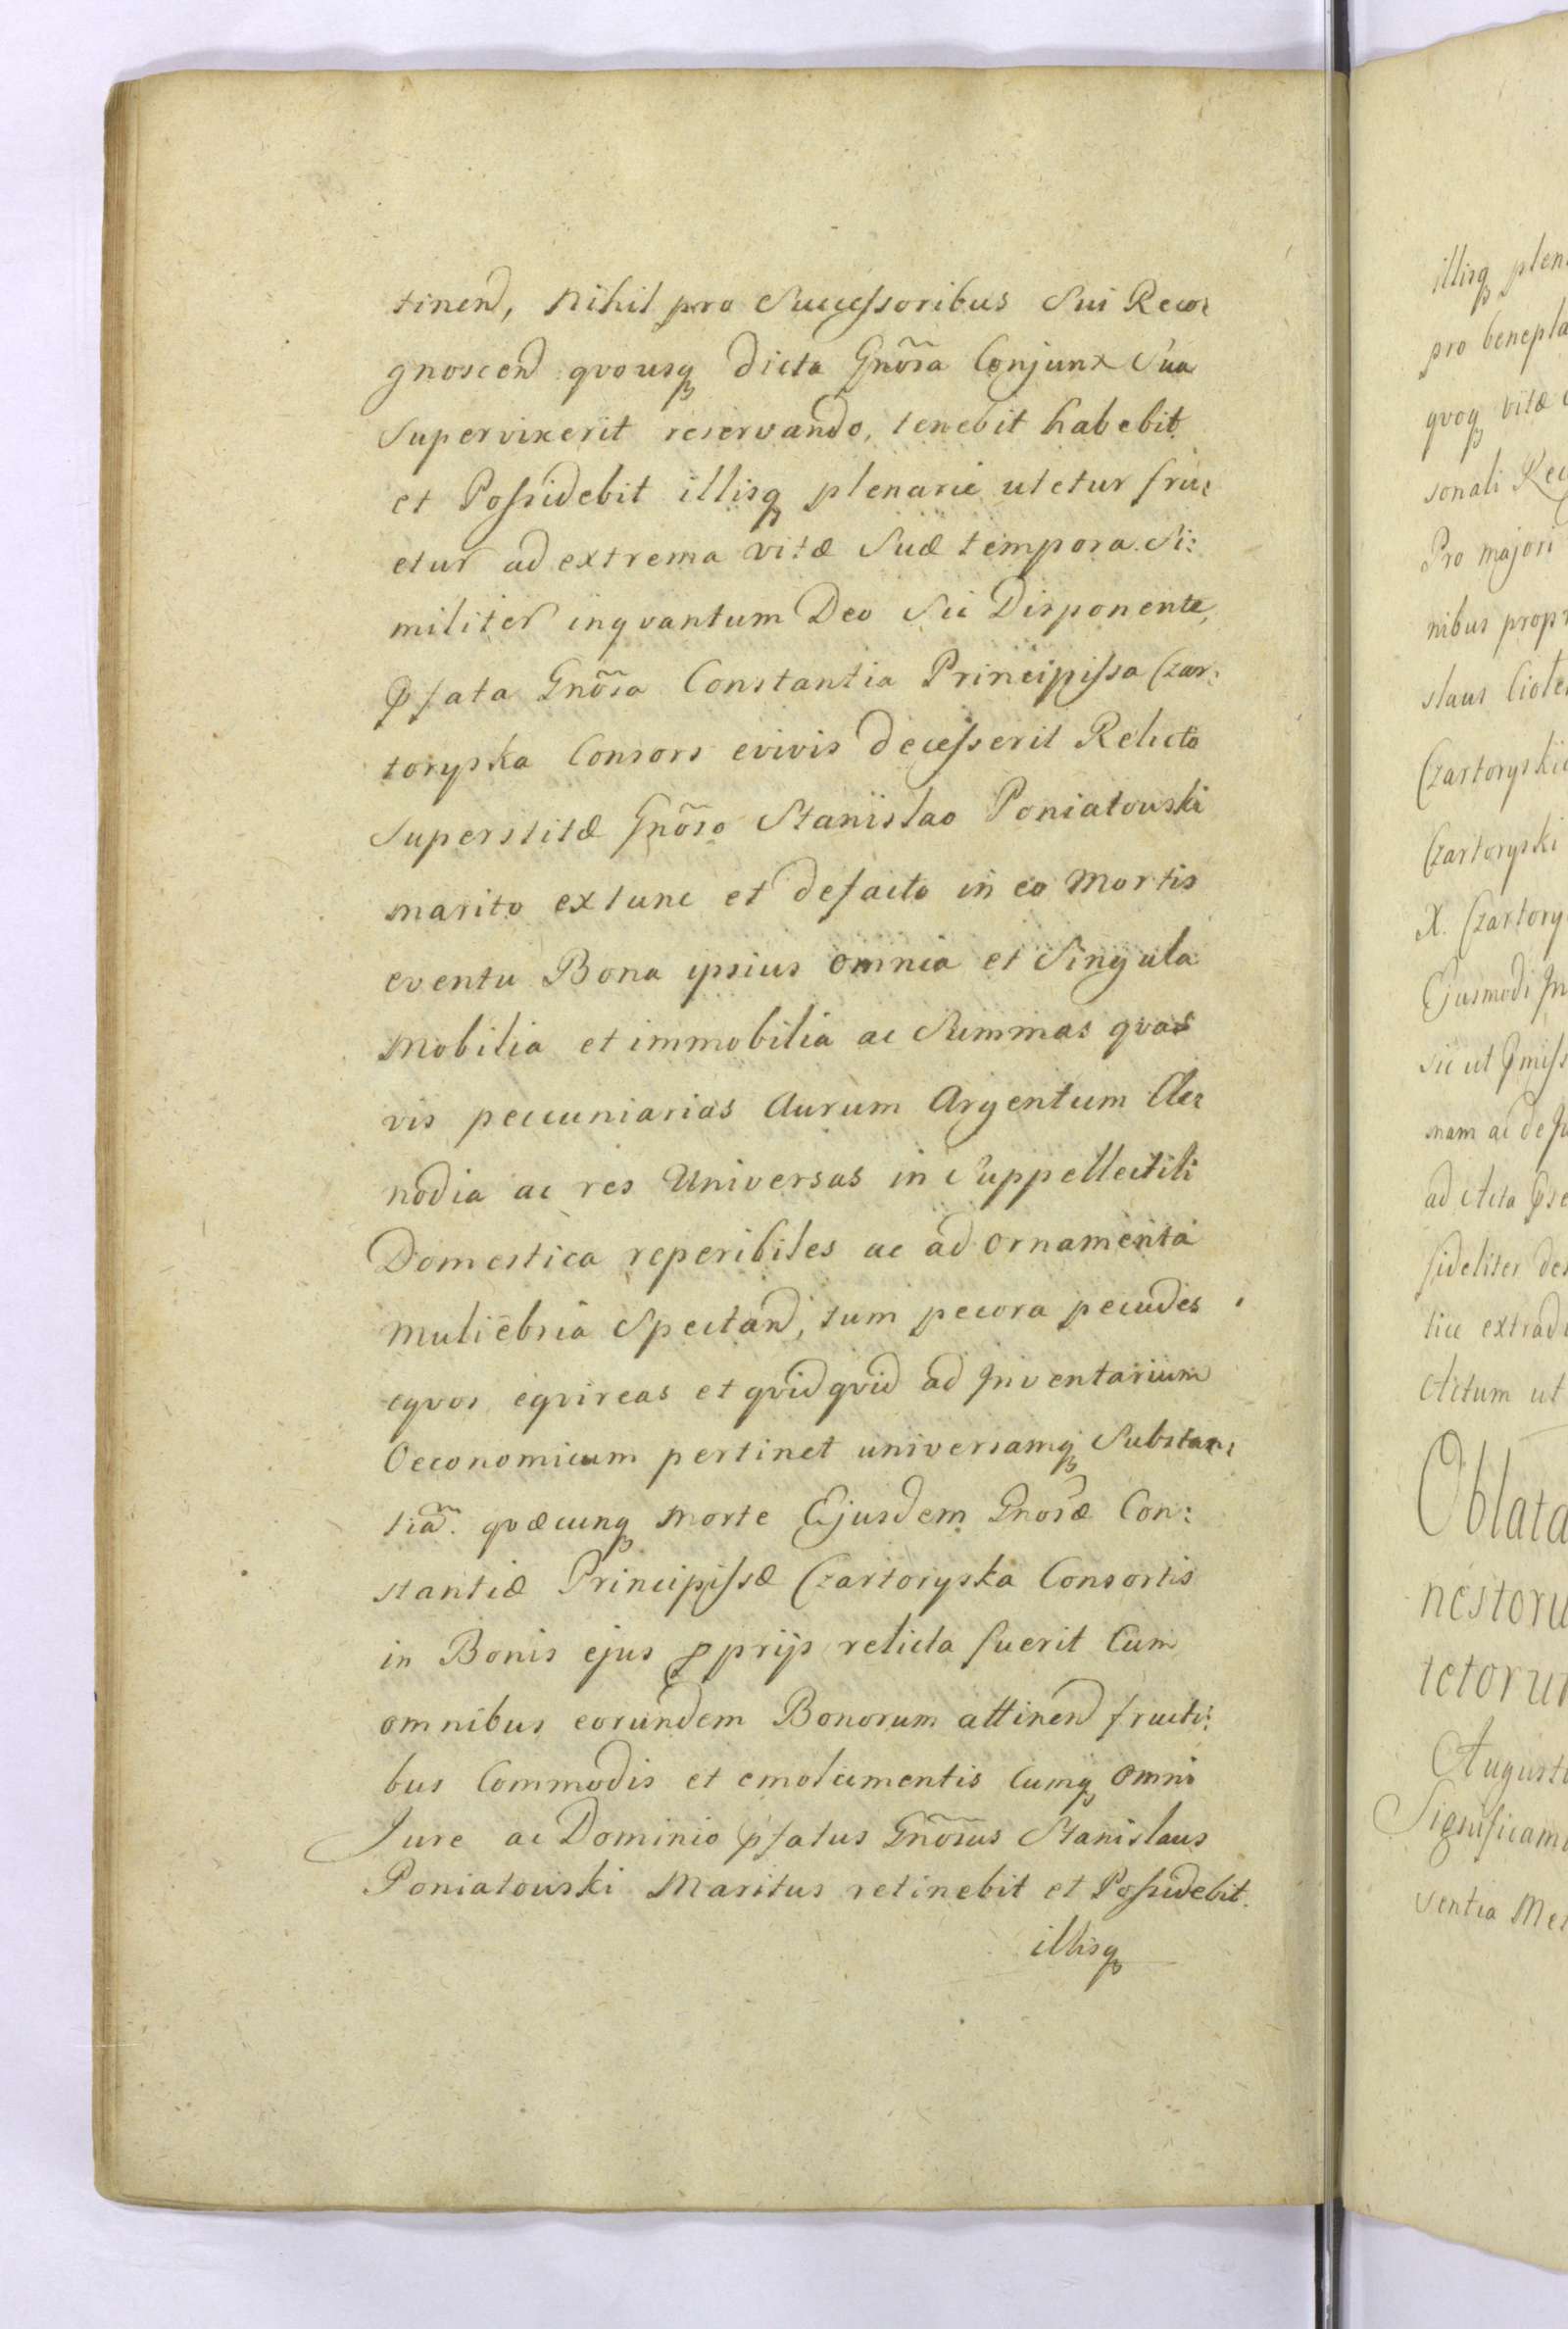 tinend, Nihil pro Successoribus Sui Reco:
gnoscend qvousq dicta Gnõsa Conjunx Sua
Supervixerit reservando, tenebit habebit
et Possidebit illisq plenarie utetur fru:
etur ad extrema vitæ Suæ tempora. Si:
militer inqvantum Deo Sic Disponente,
Pfata Gnõsa Constantia Principissa Czar:
toryska Consors evivis decesserit Relicto
Superstitæ Gnõso Stanislao Poniatowski
marito extunc et defacto in eo Mortis
eventu Bona ipsius omnia et Singula
Mobilia et immobilia ac Summas qvas
vis peccuniarias Aurum Argentum Cle:
nodia ac res Universas in Suppellectili
Domestica reperibiles ac ad ornamenta
Muliebria Spectand, tum pecora pecudes
eqvos eqvireas et qvidqvid ad Inventarium
Oeconomicum pertinet universamq Substan:
tiã. qvæcunq Morte Ejusdem Gnosæ Con:
stantiæ Principissæ Czartoryska Consortis
in Bonis ejus pprijs relicta fuerit Cum
omnibus eorundem Bonorum attinend fructi:
bus Commodis et emolumentis Cumq omni
Jure ac Dominio pfatus Gnõsus Stanislaus
Poniatowski Maritus retinebit et Possidebit.
illisq
illisq plen
pro benepla
qvoq vitæ
sonali Rec
Pro majori
nibus propr
slaus Ciole
Czartoryski
Czartoryski
X. Czartory
Ejusmodi In
sic ut pmiss
nam ac de
ad Acta pse
fideliter des
tice extrad
Actum ut
Oblata
nestoru
tetorum
Augusti
Significam
ventia Mei